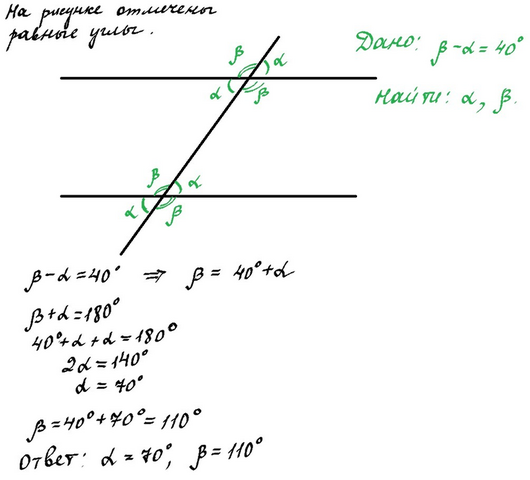 На рисунке отмечены
равные углы.
Дано: β-α=40°
Найти: α, β.
β α
α β
β α
α β
β-α=40° ⇒ β= 40°+α
β+α=180°
40°+α+α=180°
2α=140°
α=70°
β=40°+70°=110°
Ответ: α=70°, β=110°